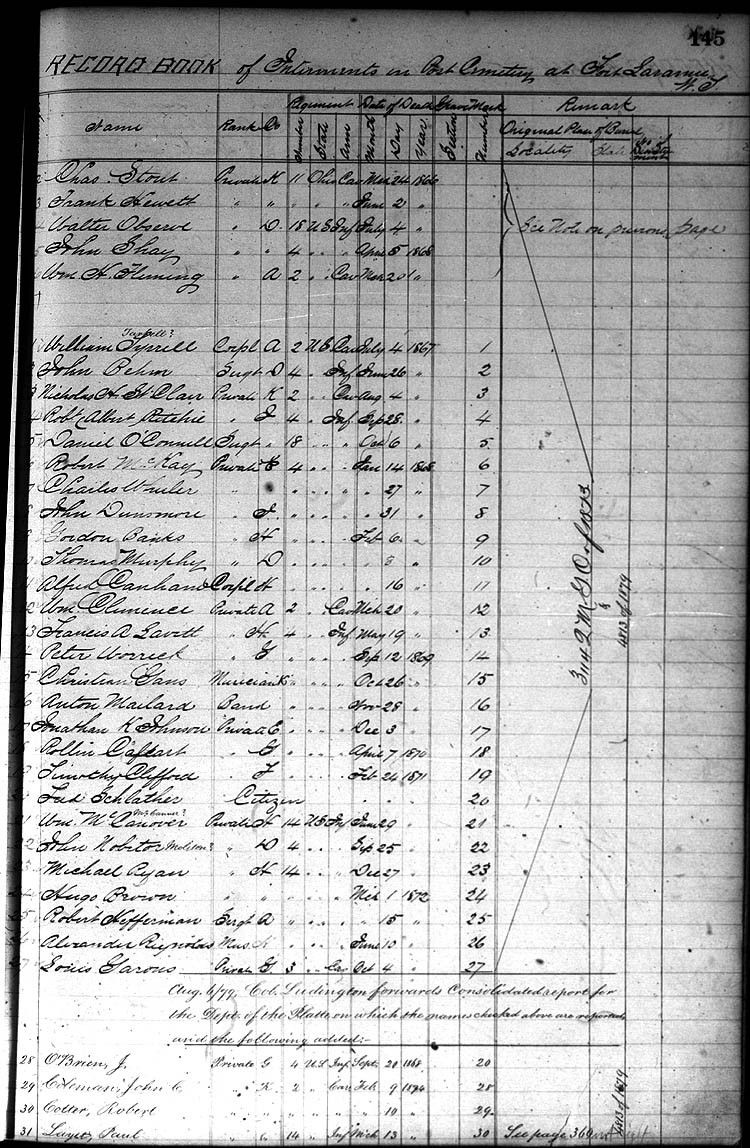 145
RECORD BOOK of Interments in Post Cemetery at Fort Laramie W. T.
Regiment Date of Death Grave Mark Remark
Name Rank Co Number State Arm Month Day Year Section Number Original Place of Burial
Locality State No of Documents
2 Chas. Stout Private K 11 Ohio Cav Mch 24 1866
3 Frank Hewett " " " " " June 2 "
4 Walter Observe " D. 18 U S Inf July 4 " See Note on previous page
5 John Shay " " 4 " " April 5 1868
6 Wm. H. Fleming " A 2 " Cav Mch 20 "
7
1 William Tyrrell Corpl A 2 U S Cav July 4 1867 1
2 John Behm Sergt D 4 " Inf June 26 " 2
3 Nicholas H. St Clair Private K 2 " Cav Aug 4 " 3
4 Robt Albert Ritchie " 4 " Inf Sep 28 " 4
5 Daniel O'Connell Sergt " 18 " " Oct 6 " 5
6 Robert McKay Private E 4 " " Jan 14 1868 6
7 Charles " " " " " " 27 " 7
8 John Dunomore " " " " " 31 " 8
9 Gordon Banks " H " " " Feb 6 " 9
Thomas Murphy " D " " " " 10
Alfred Canham Corpl H " " " " 16 " 11
12 Wm. Clemence Private A 2 " Cav Mch 20 " 12
13 Francis A. Lavitt " H 4 " Inf May 19 " 13
Peter Worrick " G " " " Sep 12 1869 14
15 Christian Gans Musician K " " " Oct 26 " 15
16 Anton Mailard Band " " " Nov 28 " 16
17 Jonathan K Johnson Private E " " " Dec 3 " 17
18 Rollin " G " " " April 7 1870 18
19 Timothy Clifford " " " " Feb 24 1871 19
Fred Schlather Citizen " " " 20
21 Wm. McCanover Private H 14 U S Inf June 29 " 21
22 John Nobitor " D 4 " " Sep 25 " 22
23 Michael Ryan " H 14 " " Dec 27 " 23
24 Hugo Brown " " " " " Mch 1 1872 24
25 Robert Hefferman Sergt A " " " " 15 " 25
26 Alexander Reynolds Mus " " " June 10 " 26
27 Louis Garous Private G 3 " Cav Oct 4 " 27
3442 M G O of 1873
&
4813 of 1879
Aug. 6/79 Col. Ludington forwards Consolidated report for
the Dept. of the Platte, on which the names checked above are reported
and the following added:-
28 O'Brien, J. Private G 4 U S Inf Sept. 20 1868 20
29 Coleman, John C " K 2 " Cav Feb 9 1874 28
30 Cotter, Robert " " " " " " 10 " 29
31 Paul " " 14 " Inf Mch 13 " 30 See page 360
4813 of 1879